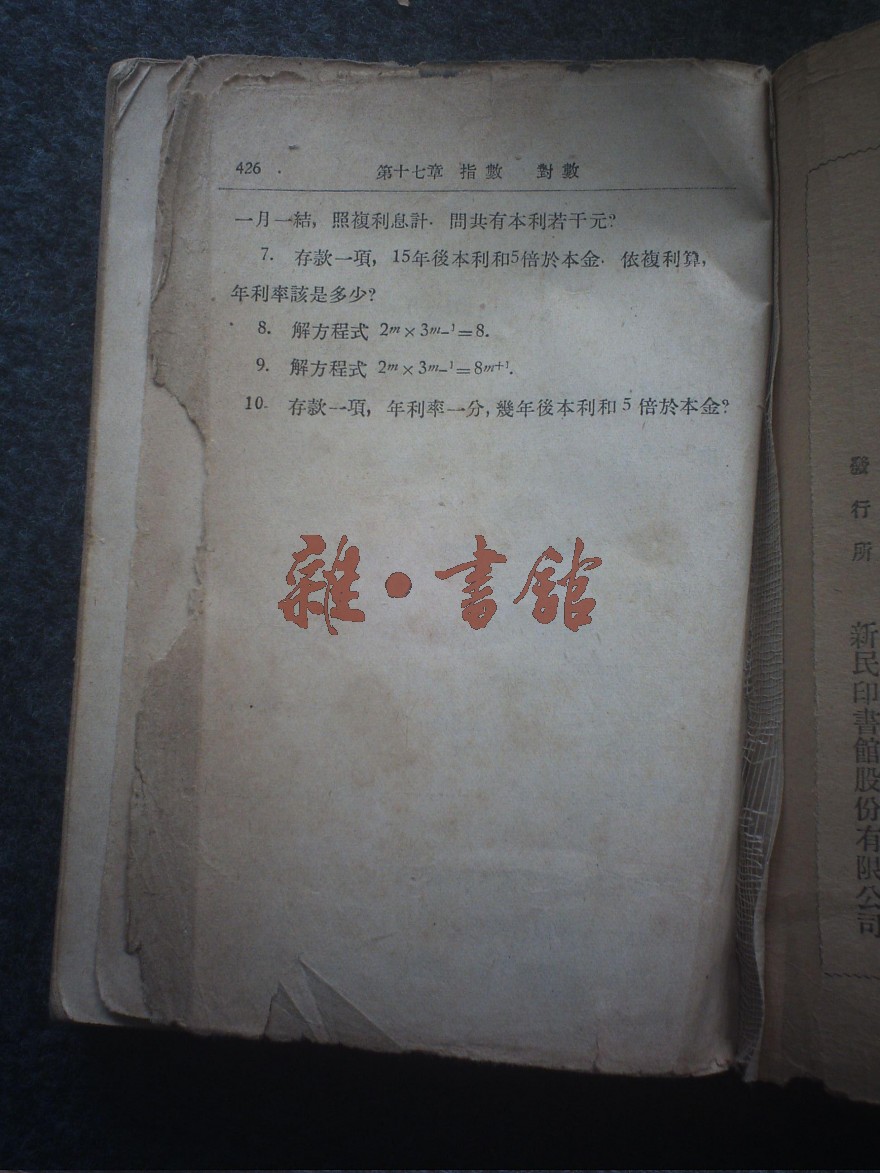 426 第十七章 指數 對數
一月一結, 照複利息計. 問共有本利若干元?
7. 存款一項, 15年後本利和5倍於本金. 依複利算,
年利率該是多少?
8. 解方程式 2ᵐ×3ᵐ⁻¹=8.
9. 解方程式 2ᵐ×3ᵐ⁻¹=8ᵐ⁺¹.
10. 存款一項, 年利率一分, 幾年後本利和5倍於本金?
雜·書館
發行所 新民印書館股份有限公司